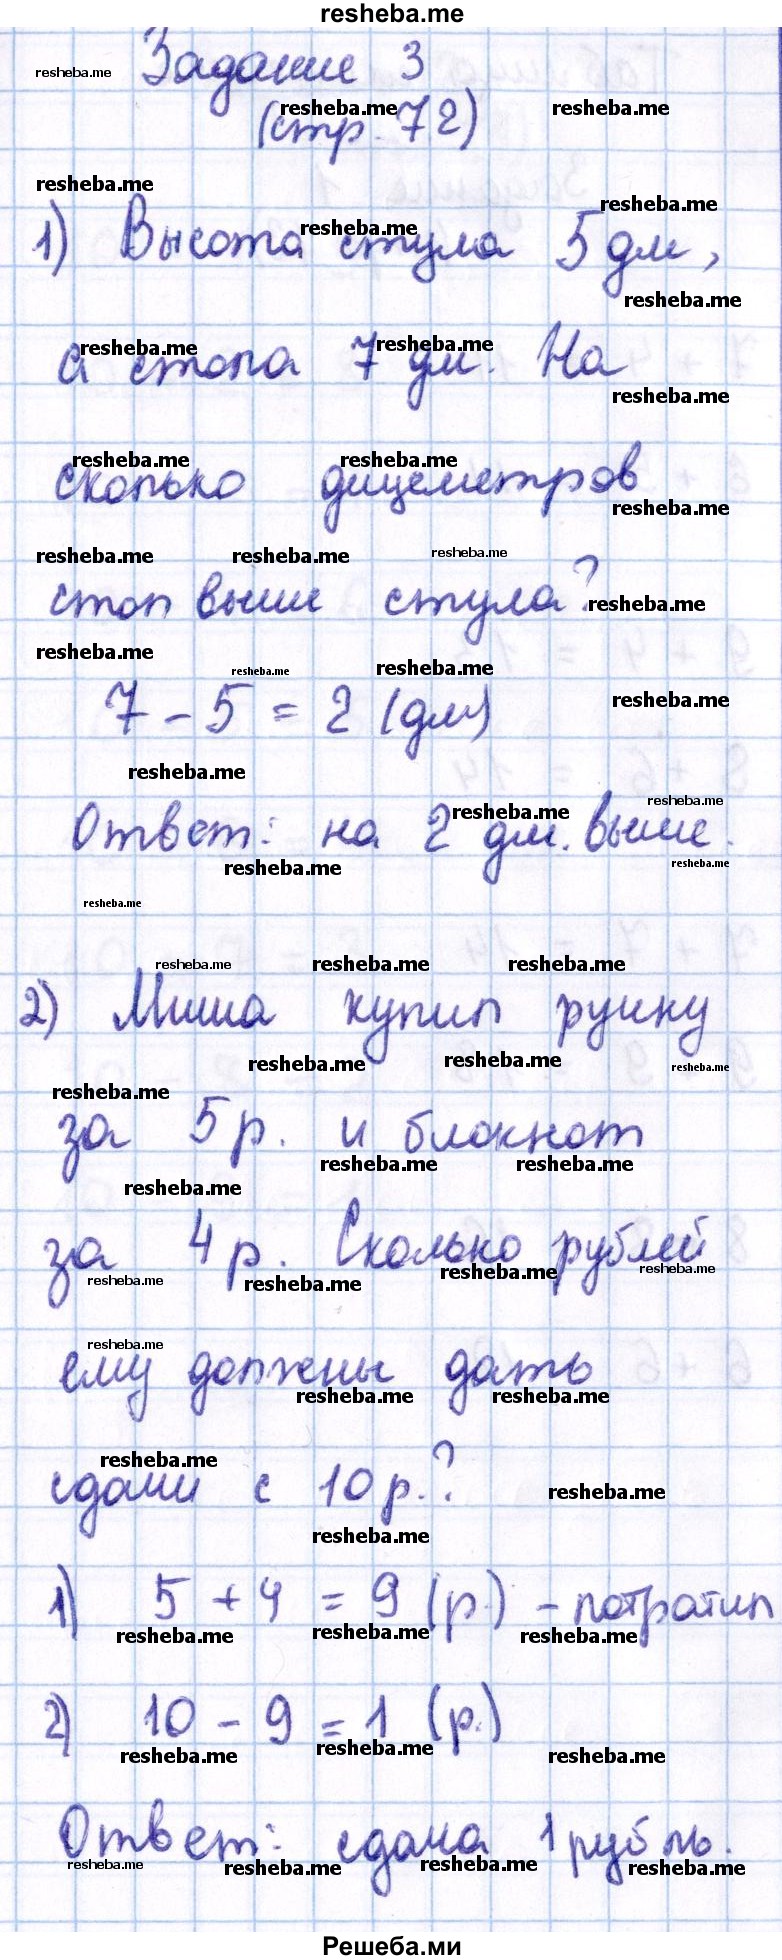 resheba.me
Задание 3
resheba.me
(стр. 72)
resheba.me resheba.me
resheba.me
resheba.me
resheba.me
1) Высота стула 5 дм,
resheba.me
resheba.me resheba.me
а стола 7 дм. На
resheba.me
resheba.me resheba.me
сколько дицеметров
resheba.me
resheba.me resheba.me resheba.me
стол выше стула?
resheba.me
resheba.me
resheba.me resheba.me
resheba.me
7 - 5 = 2 (дм)
resheba.me
resheba.me
resheba.me
Ответ: на 2 дм. выше.
resheba.me resheba.me
resheba.me
resheba.me resheba.me resheba.me
2) Миша купил ручку
resheba.me resheba.me resheba.me
resheba.me
за 5 р. и блокнот
resheba.me resheba.me
resheba.me
за 4 р. Сколько рублей
resheba.me resheba.me resheba.me resheba.me
resheba.me
ему должны дать
resheba.me resheba.me
resheba.me
сдачи с 10 р.?
resheba.me
resheba.me
1) 5 + 4 = 9 (р.) - потратил
resheba.me resheba.me resheba.me
2) 10 - 9 = 1 (р.)
resheba.me resheba.me resheba.me
Ответ: сдача 1 рубль.
resheba.me resheba.me resheba.me resheba.me
Решеба.ми